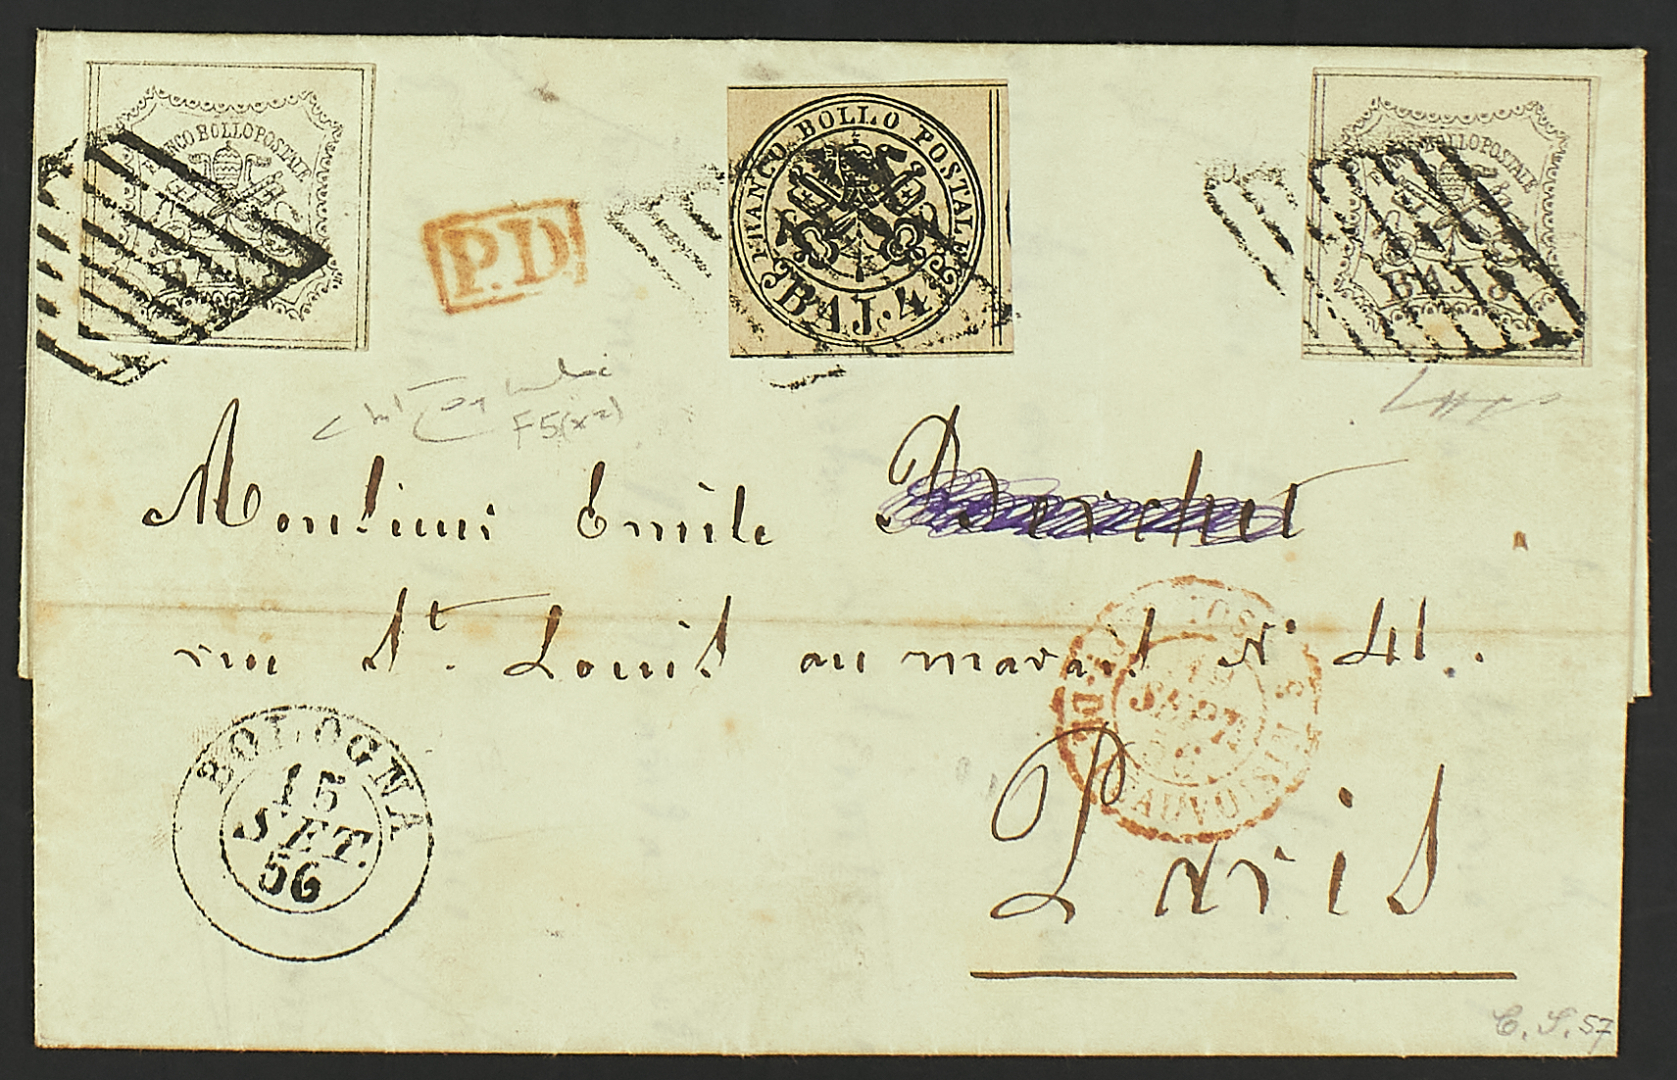 FRANCO BOLLO POSTALE
BAJ
P.D
FRANCO BOLLO POSTALE
BAJ.4
FRANCO BOLLO POSTALE
BAJ 8
F5(x2)
Monsieur Emile
rue St. Louis au marais N° 41.
Paris
BOLOGNA
15
SET.
56
SEPT.
BEAUVOISIN
C.S.57